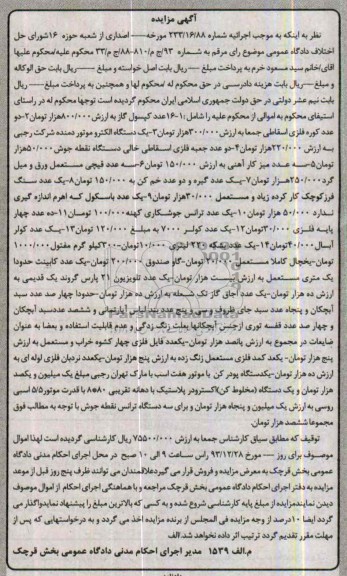 آگهی مزایده
نظر به اینکه به موجب اجرائیه شماره ۲۳۳/۱۶/۸۸ مورخه---- اصداری از شعبه حوزه ۱۶شورای حل
اختلاف دادگاه عمومی موضوع رای مرقم به شماره ۹۳/ج م/۸۱۰-۸۸/ج م/۳۳ محکوم علیه/محکوم علیها
آقای/خانم سید مسعود خرم به پرداخت مبلغ --- ریال بابت اصل خواسته و مبلغ ----ریال بابت حق الوکاله
و مبلغ ---ریال بابت هزینه دادرسی در حق محکوم له /محکوم لها و همچنین به پرداخت مبلغ---- ریال
بابت نیم عشر دولتی در حق دولت جمهوری اسلامی ایران محکوم گردیده است توجها محکوم له در راستای
استیفای محکوم به اموالی از محکوم علیه را شامل :۱-۱۶عدد کپسول گاز به ارزش ۸۰۰/۰۰۰هزار تومان۲-دو
عدد کوره فلزی اسقاطی جمعا به ارزش ۳۰۰/۰۰۰هزار تومان۳-یک دستگاه الکترو موتور دمنده شرکت رجبی
به ارزش ۲۲۰/۰۰۰هزار تومان۴-دو عدد جعبه فلزی اسقاطی خالی دستگاه نقطه جوش ۵۰/۰۰۰هزار
تومان۵-سه عدد میز کار آهنی به ارزش ۱۵۰/۰۰۰ تومان۶-سه عدد قیچی مستعمل ورق و میل
گرد۲۵۰/۰۰۰هزار تومان۷-یک عدد گیره و دو عدد خم کن به ۱۵۰/۰۰۰ تومان۸-یک عدد سنگ
فرزکوچک کار کرده زیاد و مستعمل ۳۰/۰۰۰هزار تومان۹-یک عدد باسکول که اهرم اندازه گیری
ندارد ۵۰/۰۰۰ هزار تومان ۱۰-یک عدد ترانس جوشکاری کهنه ۱۰۰/۰۰۰ تومان۱۱-ده عدد چهار
پایه فلزی ۳۰/۰۰۰تومان۱۲-یک عدد کولر ۷۰۰۰ به مبلغ ۱۲۰/۰۰۰ تومان۱۳-یک عدد کولر
آبسال۴۰/۰۰۰تومان۱۴-یک عدد بشکه ۲۲۰ لیتری ۱۰/۰۰۰تومان-۳۰۰کیلو گرم مفتول ۱۰۰۰/۰۰۰
تومان-یخچال کاملا مستعمل ۲۰/۰۰۰ تومان-گاو صندوق ۲۰۰/۰۰۰ تومان-یک عدد کابینت حدودا
یک متری مستعمل به ارزش بیست هزار تومان-یک عدد تلویزیون ۲۱ پارس گروند یک قدیمی به
ارزش ده هزار تومان-یک عدد اجاق گاز تک شعله به ارزش ده هزار تومان -حدودا چهار صد عدد سبد
آبچکان و پنجاه عدد سبد جای ظروف وسی و پنج عدد بند لباس آپارتمانی و ششصد عددسبد آبچکان
و چهار صد عدد قفسه توری ازجنس آبچکانها بعلت زنگ زدگی و عدم قابلیت استفاده و بعضا به عنوان
ضایعات در مجموع به ارزش پانصد هزار تومان-یکعدد فایل فلزی چهار کشوه خراب و مستعمل به ارزش
پنج هزار تومان- یکعدد کمد فلزی مستعمل زنگ زده به ارزش پنج هزار تومان-یکعدد نردبان فلزی لوله ای به
ارزش ده هزار تومان-یکدستگاه پودر کن با موتور هفت اسب با مارک تهران رجبی مبلغ یک میلیون و یکصد
هزار تومان و یک دستگاه (مخلوط کن)اکسترودر پلاستیک با دهانه تقریبی ۸۰*۸ با قدرت موتور۵/۵ اسبی
روسی به ارزش یک میلیون و پنجاه هزار تومان و برای سه دستگاه ترانس نقطه جوش با توجه به مطالب فوق
مجموعا ششصد هزار تومان.
توقیف که مطابق سیاق کارشناس جمعا به ارزش ۷۵۵۰۰/۰۰۰ ریال کارشناسی گردیده است لهذا اموال
موصوف برای روز ---- مورخ ۹۳/۱۲/۲۸ راس ساعت ۹ الی ۱۰ صبح در محل اجرای احکام مدنی دادگاه
عمومی بخش قرچک به معرض مزایده و فروش قرار می گیرد علاقمندان می توانند ظرف پنج روز قبل از موعد
مزایده به دفتر اجرای احکام دادگاه عمومی بخش قرچک مراجعه و با هماهنگی اجرای احکام از اموال موصوف
دیدن نمایندمزایده از مبلغ پایه کارشناسی شروع شده و به کسی که بالاترین مبلغ را پیشنهاد نمایدواگذار می
گردد ایضا ۱۰درصد از وجه مزایده فی المجلس از برنده مزایده اخذ می گردد و به درخواستهایی که پس از
مهلت مقرر تقدیم گردد ترتیب اثر داده نخواهد شد.الف
م.الف ۱۵۳۹ مدیر اجرای احکام مدنی دادگاه عمومی بخش قرچک